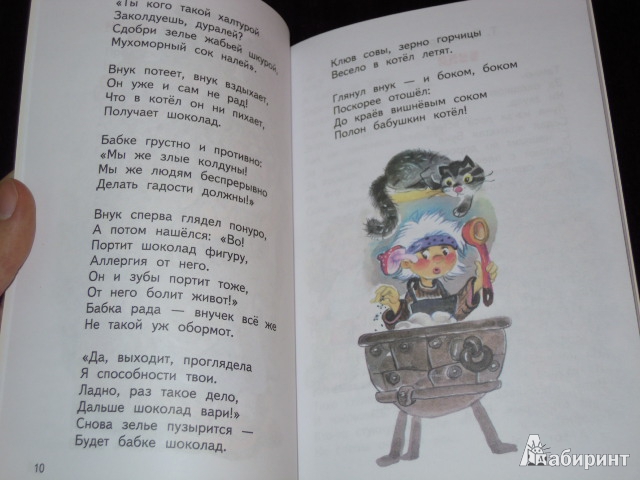 «Ты кого такой халтурой
Заколдуешь, дуралей?
Сдобри зелье жабьей шкурой,
Мухоморный сок налей».
Внук потеет, внук вздыхает,
Он уже и сам не рад!
Что в котёл он ни пихает,
Получает шоколад.
Бабке грустно и противно:
«Мы же злые колдуны!
Мы же людям беспрерывно
Делать гадости должны!»
Внук сперва глядел понуро,
А потом нашёлся: «Во!
Портит шоколад фигуру,
Аллергия от него.
Он и зубы портит тоже,
От него болит живот!»
Бабка рада — внучек всё же
Не такой уж обормот.
«Да, выходит, проглядела
Я способности твои.
Ладно, раз такое дело,
Дальше шоколад вари!»
Снова зелье пузырится —
Будет бабке шоколад.
10
Клюв совы, зерно горчицы
Весело в котёл летят.
Глянул внук — и боком, боком
Поскорее отошёл:
До краёв вишнёвым соком
Полон бабушкин котёл!
Лабиринт